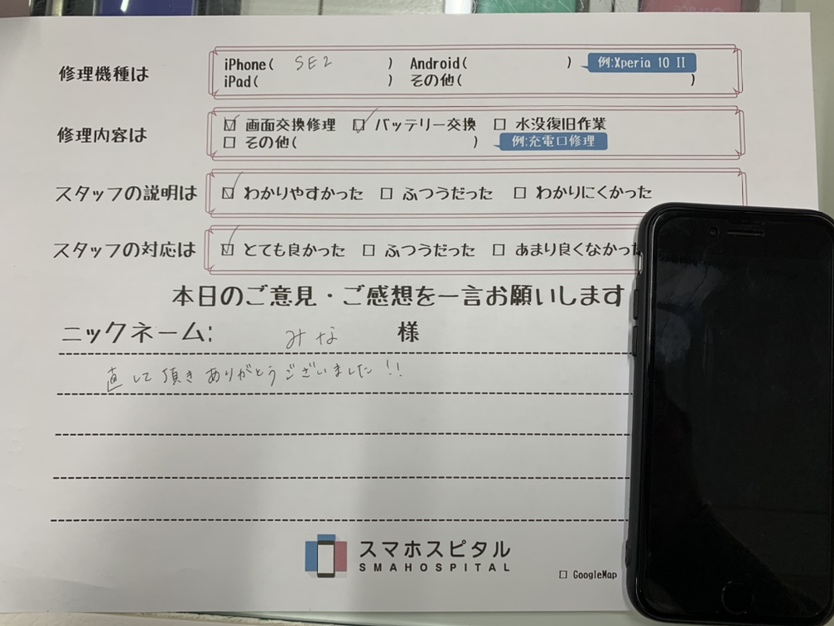 修理機種は
iPhone( SE2 ) Android( ) 例:Xperia 10 II
iPad( ) その他( )
修理内容は
☑ 画面交換修理 ☑ バッテリー交換 ☐ 水没復旧作業
☐ その他( ) 例:充電口修理
スタッフの説明は ☑ わかりやすかった ☐ ふつうだった ☐ わかりにくかった
スタッフの対応は ☑ とても良かった ☐ ふつうだった ☐ あまり良くなかった
本日のご意見・ご感想を一言お願いします
ニックネーム: みな 様
直して頂きありがとうございました!!
スマホスピタル
SMAHOSPITAL
☐ GoogleMap